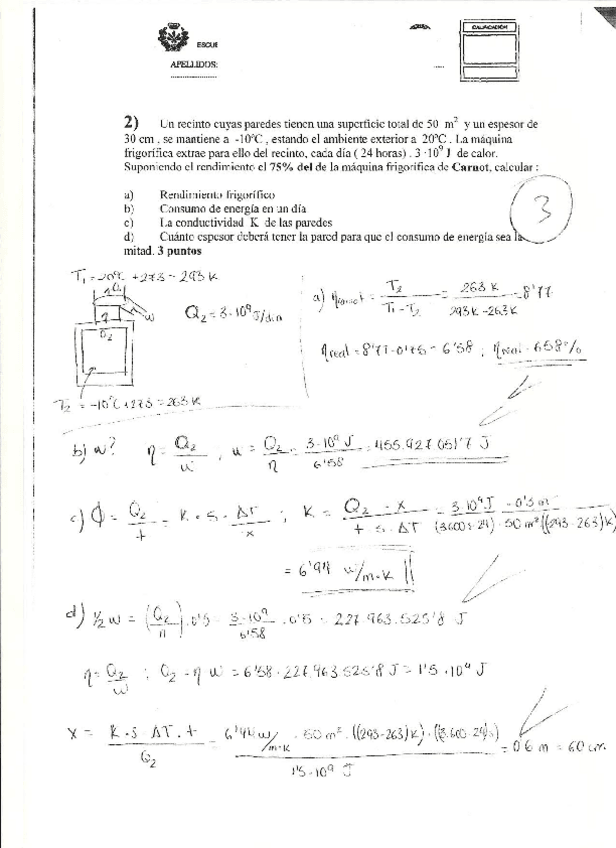 ESCUE
APELLIDOS:
CALIFICACIÓN
2) Un recinto cuyas paredes tienen una superficie total de 50 m² y un espesor de
30 cm , se mantiene a -10ºC , estando el ambiente exterior a 20ºC . La máquina
frigorífica extrae para ello del recinto, cada día ( 24 horas) . 3 ·10⁹ J de calor.
Suponiendo el rendimiento el 75% del de la máquina frigorífica de Carnot, calcular :
a) Rendimiento frigorífico
b) Consumo de energía en un día
c) La conductividad K de las paredes
d) Cuánto espesor deberá tener la pared para que el consumo de energía sea la
mitad. 3 puntos
3
T₁ = 20ºC + 273 = 293 K
Q₁
W
Q₂
Q₂ = 3·10⁹ J/día
T₂ = -10ºC + 273 = 263 K
a) η carnot = T₂ / (T₁ - T₂) = 263 K / (293K - 263K) = 8'77
η real = 8'77·0'75 = 6'58 ; η real = 658%
b) w? η = Q₂/w ; w = Q₂/η = 3·10⁹ J / 6'58 = 455.927.051'7 J
c) Φ = Q₂/t = K · S · ΔT/x ; K = Q₂ · x / (t · S · ΔT) = 3·10⁹ J · 0'3 m / ((3.600·24) · 50 m² ((293-263)K)
= 6'94 W/m·K
d) ½ w = (Q₂/η) · 0'5 = 3·10⁹/6'58 · 0'5 = 227.963.525'8 J
η = Q₂/w ; Q₂ = η w = 6'58 · 227.963.525'8 J = 1'5 · 10⁹ J
x = K · S · ΔT · t / Q₂ = 6'94 W/m·K · 50 m² · ((293-263)K) · (3.600·24)s / 1'5·10⁹ J = 0'6 m = 60 cm